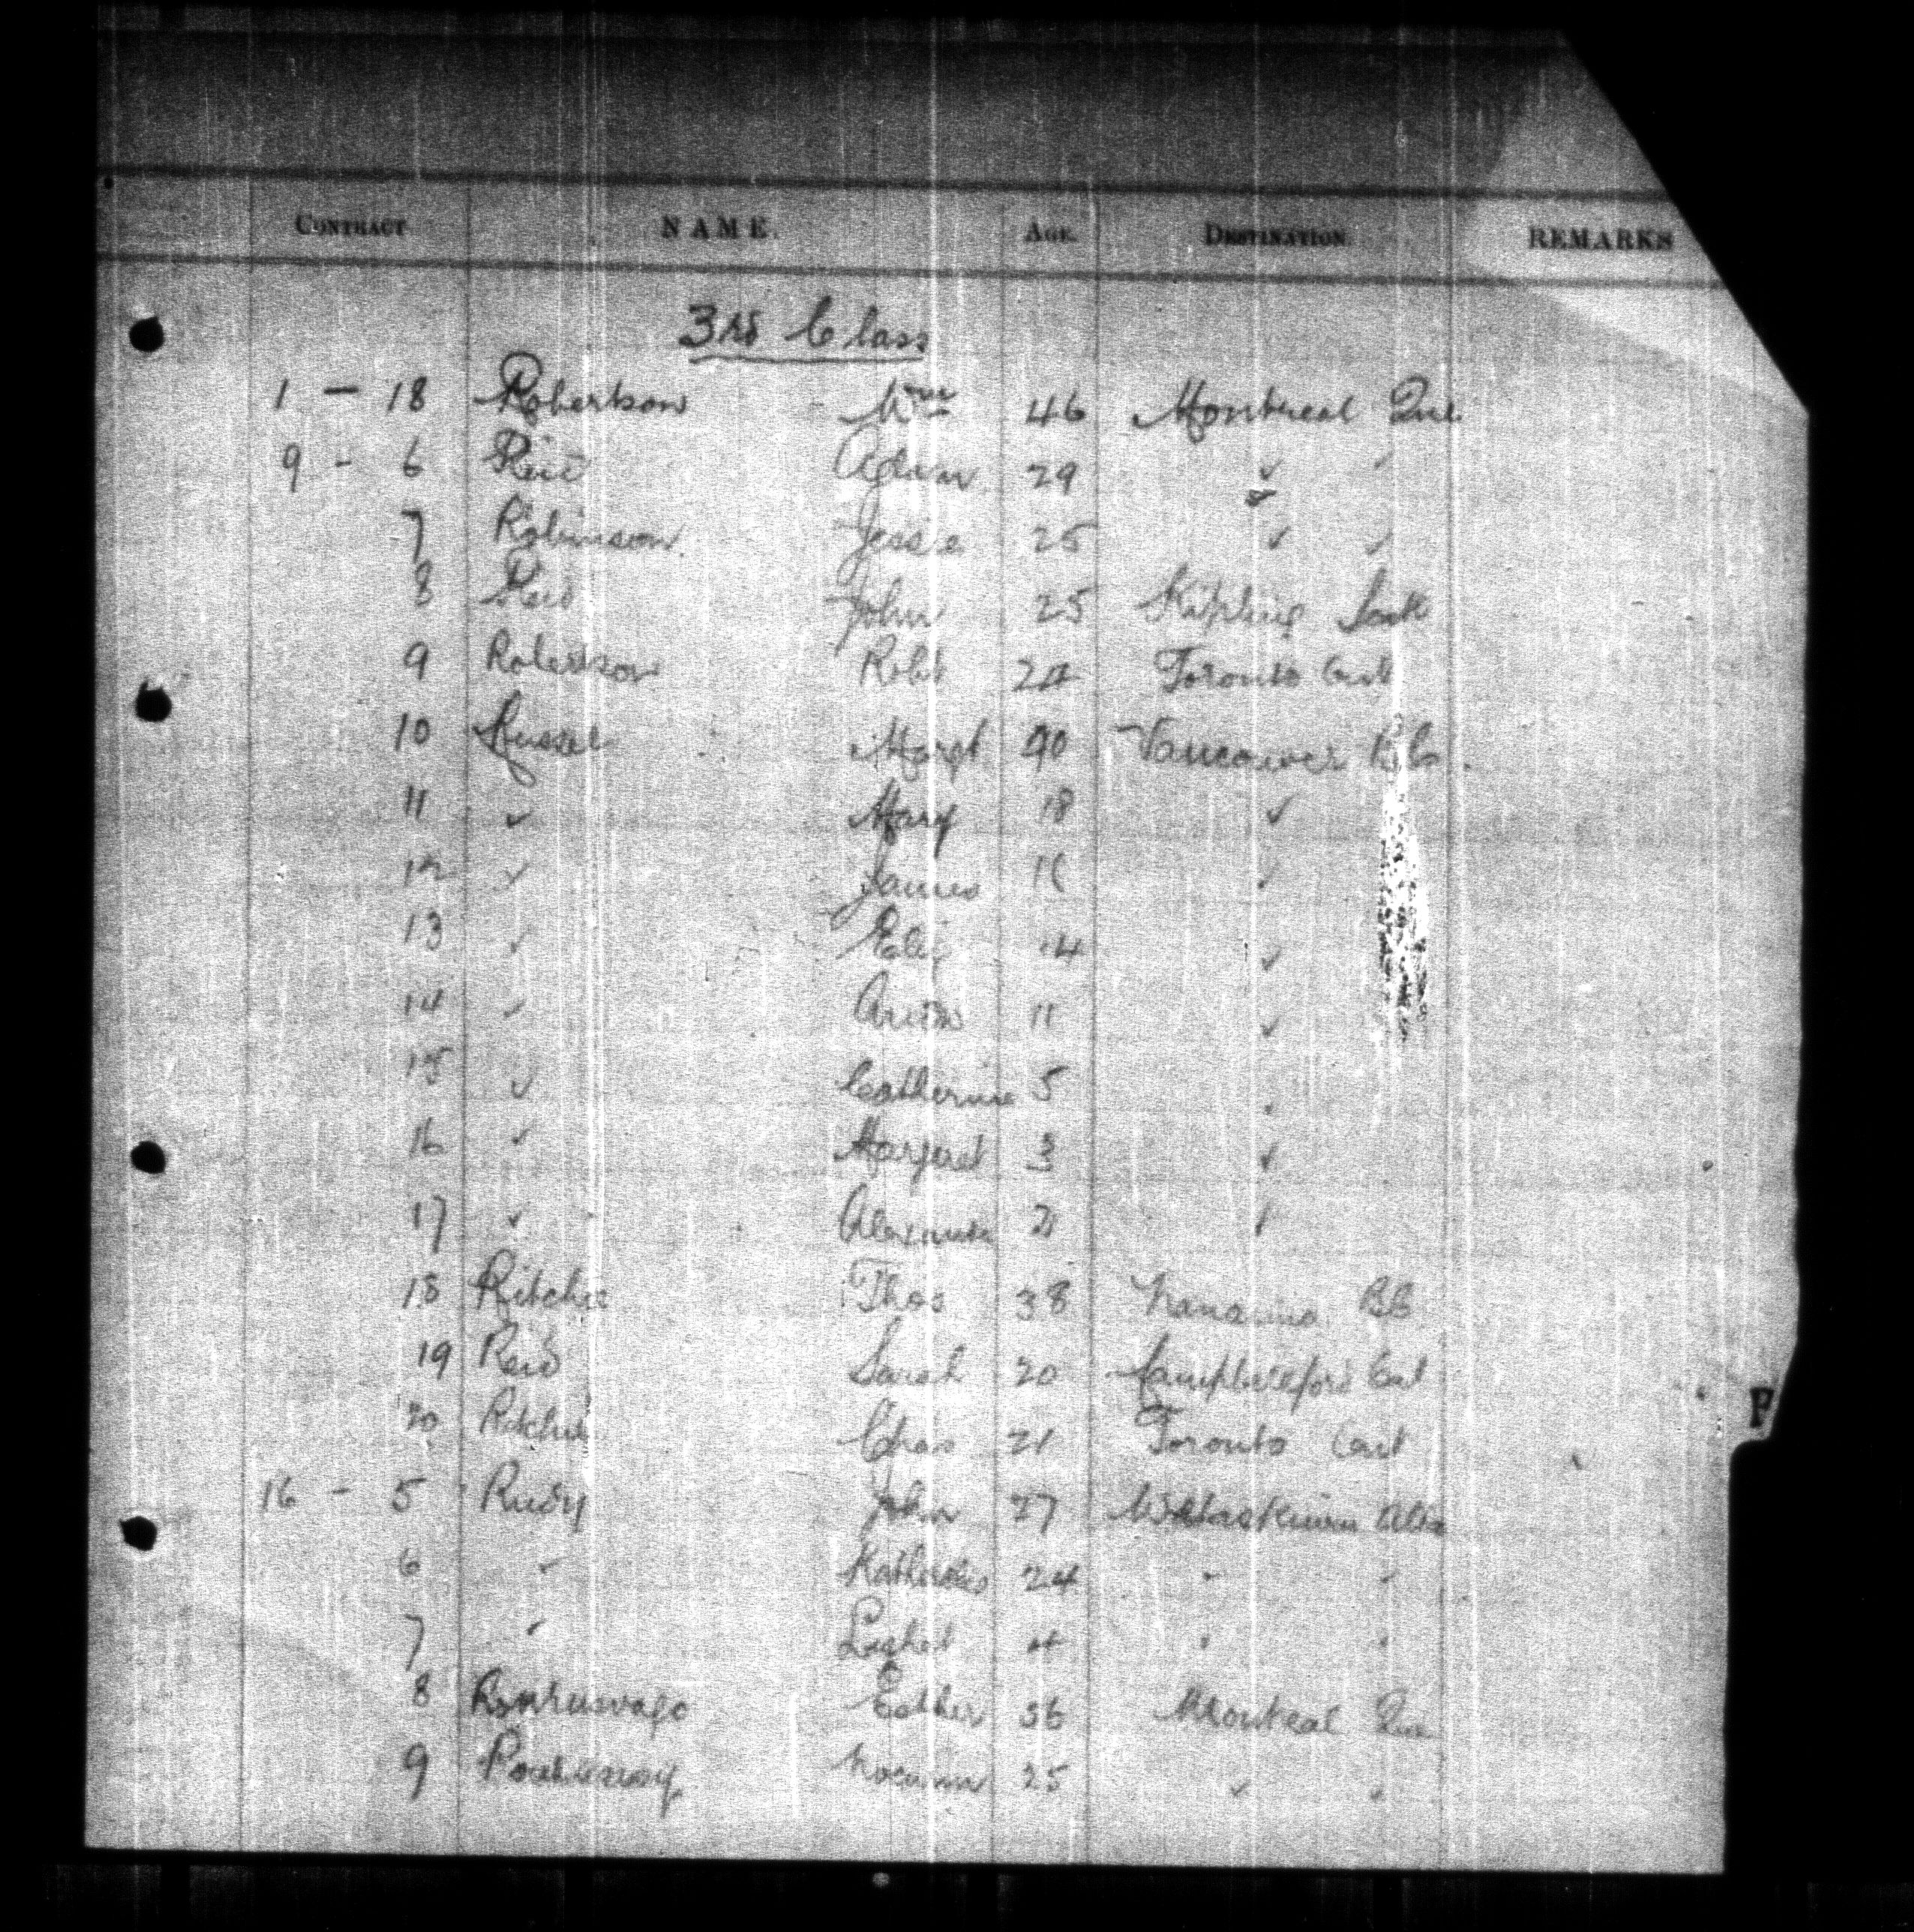 CONTRACT NAME. AGE. DESTINATION REMARKS
3rd Class
1 - 18 Robertson Wm 46 Montreal Que.
9 - 6 Reid Adam 29 ✓ ✓
7 Robinson Jessie 25 ✓ ✓
8 Reid John 25 Kipling Sask
9 Robertson Robt 24 Toronto Ont
10 Russel Margt 40 Vancouver B.C.
11 ✓ Mary 18 ✓
12 ✓ James 16 ✓
13 ✓ 14 ✓
14 ✓ 11 ✓
15 ✓ Catherine 5
16 ✓ Margaret 3 ✓
17 ✓ Alexander ✓
18 Ritchie Thos 38 Nanaimo BC
19 Reid Sarah 20 Campbellford Ont
20 Ritchie Chas 21 Toronto Ont
16 - 5 Rudy John 27 Wetaskiwin Alta
6 " 24 " "
7 " 4 " "
8 Esther 36 Montreal Que
9 25 ✓ ✓
F